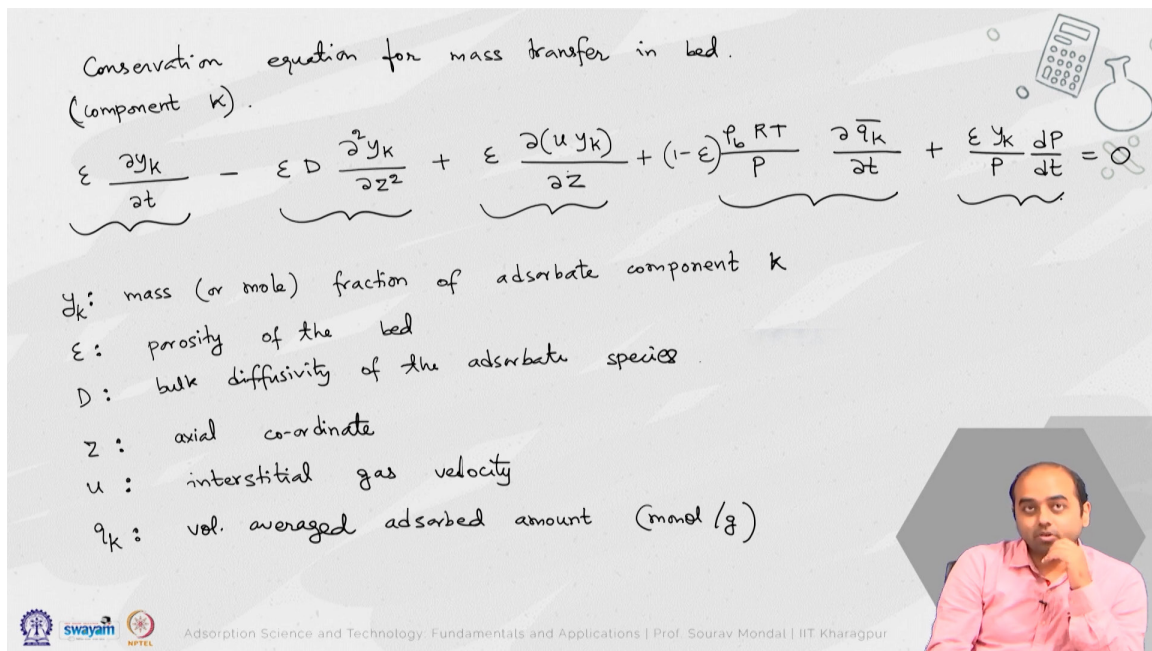 Conservation equation for mass transfer in bed.
(component k).
ε ∂yk/∂t - ε D ∂²yk/∂z² + ε ∂(u yk)/∂z + (1-ε) ρb RT/P ∂q̄k/∂t + ε yk/P dP/dt = 0
yk: mass (or mole) fraction of adsorbate component k
ε: porosity of the bed
D: bulk diffusivity of the adsorbate species
z: axial co-ordinate
u: interstitial gas velocity
qk: vol. averaged adsorbed amount (mmol/g)
swayam NPTEL Adsorption Science and Technology: Fundamentals and Applications | Prof. Sourav Mondal | IIT Kharagpur